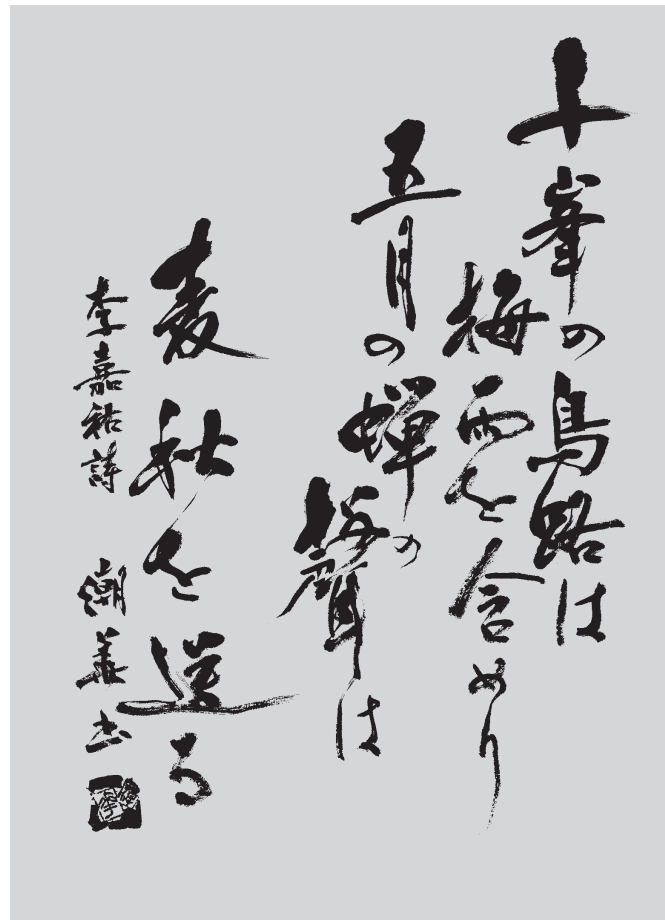 千峯の鳥路は
梅雨を含めり
五月の蝉の
聲は
麦秋を送る
李嘉祐詩 潮美书